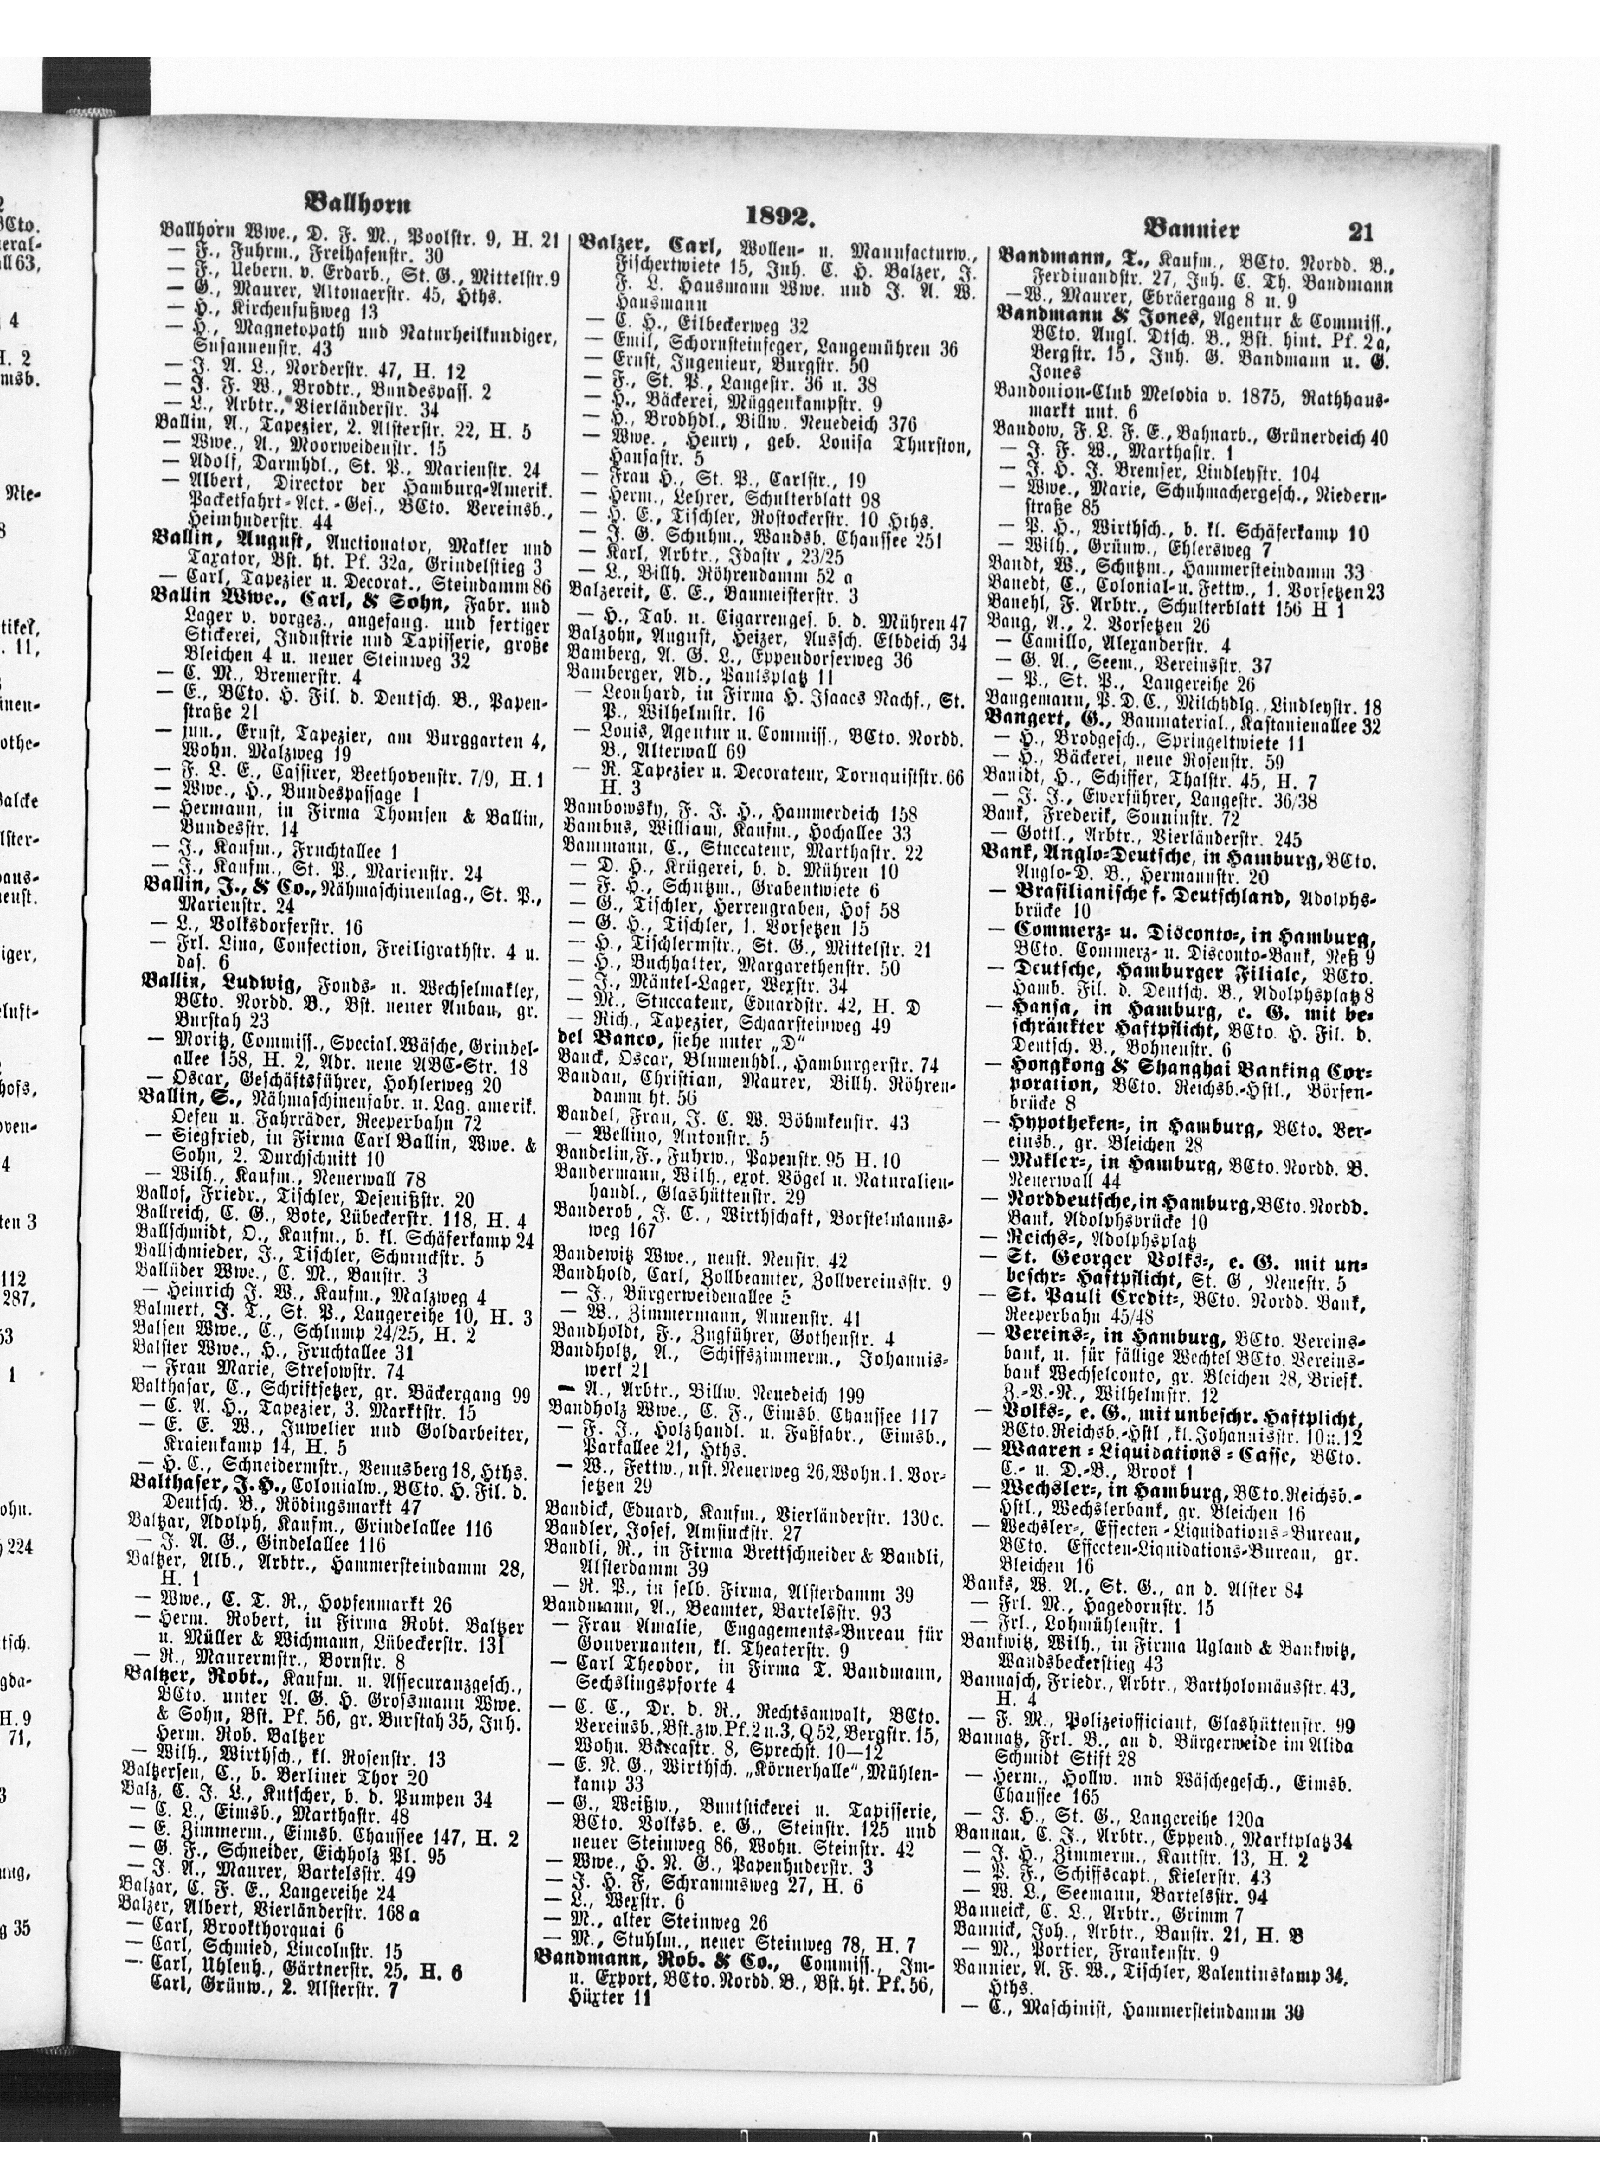 Ballhorn
1892.
Bannier 21
Ballhorn Wwe., D. F. M., Poolstr. 9, H. 21
— F., Fuhrm., Freihafenstr. 30
— F., Uebern. v. Erdarb., St. G., Mittelstr. 9
— G., Maurer, Altonaerstr. 45, Hths.
— H., Kirchenfußweg 13
— H., Magnetopath und Naturheilkundiger,
Susannenstr. 43
— J. A. L., Norderstr. 47, H. 12
— J. F. W., Brodtr., Bundespass. 2
— L., Arbtr., Vierländerstr. 34
Ballin, A., Tapezier, 2. Alsterstr. 22, H. 5
— Wwe., A., Moorweidenstr. 15
— Adolf, Darmhdl., St. P., Marienstr. 24
— Albert, Director der Hamburg-Amerik.
Packetfahrt-Act.-Ges., BCto. Vereinsb.,
Heimhuderstr. 44
Ballin, August, Auctionator, Makler und
Taxator, Bst. ht. Pf. 32a, Grindelstieg 3
— Carl, Tapezier u. Decorat., Steindamm 86
Ballin Wwe., Carl, & Sohn, Fabr. und
Lager v. vorgez., angefang. und fertiger
Stickerei, Industrie und Tapisserie, große
Bleichen 4 u. neuer Steinweg 32
— C. M., Bremerstr. 4
— E., BCto. H. Fil. d. Deutsch. B., Papen-
straße 21
— jun., Ernst, Tapezier, am Burggarten 4,
Wohn. Malzweg 19
— F. L. E., Cassirer, Beethovenstr. 7/9, H. 1
— Wwe., H., Bundespassage 1
— Hermann, in Firma Thomsen & Ballin,
Bundesstr. 14
— J., Kaufm., Fruchtallee 1
— J., Kaufm., St. P., Marienstr. 24
Ballin, J., & Co., Nähmaschinenlag., St. P.,
Marienstr. 24
— L., Volksdorferstr. 16
— Frl. Lina, Confection, Freiligrathstr. 4 u.
das. 6
Ballin, Ludwig, Fonds- u. Wechselmakler,
BCto. Nordd. B., Bst. neuer Anbau, gr.
Burstah 23
— Moritz, Commiss., Special. Wäsche, Grindel-
allee 158, H. 2, Adr. neue ABC-Str. 18
— Oscar, Geschäftsführer, Hohlerweg 20
Ballin, S., Nähmaschinenfabr. u. Lag. amerik.
Oefen u. Fahrräder, Reeperbahn 72
— Siegfried, in Firma Carl Ballin, Wwe. &
Sohn, 2. Durchschnitt 10
— Wilh., Kaufm., Neuerwall 78
Ballof, Friedr., Tischler, Desenißstr. 20
Ballreich, C. G., Bote, Lübeckerstr. 118, H. 4
Ballschmidt, O., Kaufm., b. kl. Schäferkamp 24
Ballschmieder, J., Tischler, Schmuckstr. 5
Ballüder Wwe., C. M., Baustr. 3
— Heinrich J. W., Kaufm., Malzweg 4
Balmert, J. T., St. P., Langereihe 10, H. 3
Balsen Wwe., C., Schlump 24/25, H. 2
Balster Wwe., H., Fruchtallee 31
— Frau Marie, Stresowstr. 74
Balthasar, C., Schriftsetzer, gr. Bäckergang 99
— C. A. H., Tapezier, 3. Marktstr. 15
— E. E. W., Juwelier und Goldarbeiter,
Kraienkamp 14, H. 5
— H. C., Schneidermstr., Venusberg 18, Hths.
Balthaser, J. H., Colonialw., BCto. H. Fil. d.
Deutsch. B., Rödingsmarkt 47
Baltzar, Adolph, Kaufm., Grindelallee 116
— J. A. G., Gindelallee 116
Baltzer, Alb., Arbtr., Hammersteindamm 28,
H. 1
— Wwe., C. T. R., Hopfenmarkt 26
— Herm. Robert, in Firma Robt. Baltzer
u. Müller & Wichmann, Lübeckerstr. 131
— R., Maurermstr., Bornstr. 8
Baltzer, Robt., Kaufm. u. Assecuranzgesch.,
BCto. unter A. G. H. Grossmann Wwe.
& Sohn, Bst. Pf. 56, gr. Burstah 35, Inh.
Herm. Rob. Baltzer
— Wilh., Wirthsch., kl. Rosenstr. 13
Baltzersen, C., b. Berliner Thor 20
Balz, C. J. L., Kutscher, b. d. Pumpen 34
— C. L., Eimsb., Marthastr. 48
— E. Zimmerm., Eimsb. Chaussee 147, H. 2
— G. F., Schneider, Eichholz Pl. 95
— J. A., Maurer, Bartelsstr. 49
Balzar, C. F. E., Langereihe 24
Balzer, Albert, Vierländerstr. 168a
— Carl, Brookthorquai 6
— Carl, Schmied, Lincolnstr. 15
— Carl, Uhlenh., Gärtnerstr. 25, H. 6
Carl, Grünw., 2. Alsterstr. 7
Balzer, Carl, Wollen- u. Manufacturw.,
Fischertwiete 15, Inh. C. H. Balzer, J.
F. L. Hausmann Wwe. und J. A. W.
Hausmann
— C. H., Eilbeckerweg 32
— Emil, Schornsteinfeger, Langemühren 36
— Ernst, Ingenieur, Burgstr. 50
— F., St. P., Langestr. 36 u. 38
— H., Bäckerei, Müggenkampstr. 9
— H., Brodhdl., Billw. Neuedeich 376
— Wwe., Henry, geb. Louisa Thurston,
Hansastr. 5
— Frau H., St. P., Carlstr., 19
— Herm., Lehrer, Schulterblatt 98
— H. E., Tischler, Rostockerstr. 10 Hths.
— J. G. Schuhm., Wandsb. Chaussee 251
— Karl, Arbtr., Idastr., 23/25
— L., Billh. Röhrendamm 52 a
Balzereit, C. E., Baumeisterstr. 3
— H., Tab. u. Cigarrengesc. b. d. Mühren 47
Balzohn, August, Heizer, Aussch. Elbdeich 34
Bamberg, A. G. L., Eppendorferweg 36
Bamberger, Ad., Paulsplatz 11
— Leonhard, in Firma H. Isaacs Nachf., St.
P., Wilhelmstr. 16
— Louis, Agentur u. Commiss., BCto. Nordd.
B., Alterwall 69
— R. Tapezier u. Decorateur, Tornquiststr. 66
H. 3
Bambowsky, F. J. H., Hammerdeich 158
Bambus, William, Kaufm., Hochallee 33
Bammann, C., Stuccateur, Marthastr. 22
— D. H., Krügerei, b. d. Mühren 10
— F. H., Schutzm., Grabentwiete 6
— G., Tischler, Herrengraben, Hof 58
— G. H., Tischler, 1. Vorsetzen 15
— H., Tischlermstr., St. G., Mittelstr. 21
— H., Buchhalter, Margarethenstr. 50
— J., Mäntel-Lager, Wexstr. 34
— M., Stuccateur, Eduardstr. 42, H. D
— Rich., Tapezier, Schaarsteinweg 49
del Banco, siehe unter „D“
Banck, Oscar, Blumenhdl., Hamburgerstr. 74
Bandau, Christian, Maurer, Billh. Röhren-
damm ht. 56
Bandel, Frau, J. C. W. Böhmkenstr. 43
— Wellino, Antonstr. 5
Bandelin, F., Fuhrw., Papenstr. 95 H. 10
Bandermann, Wilh., exot. Vögel u. Naturalien-
handl., Glashüttenstr. 29
Banderob, J. C., Wirthschaft, Borstelmanns-
weg 167
Bandewitz Wwe., neust. Neustr. 42
Bandhold, Carl, Zollbeamter, Zollvereinsstr. 9
— J., Bürgerweidenallee 5
— W., Zimmermann, Annenstr. 41
Bandholdt, F., Zugführer, Gothenstr. 4
Bandholtz, A., Schiffszimmerm., Johannis-
werf 21
— A., Arbtr., Billw. Neuedeich 199
Bandholz Wwe., C. F., Eimsb. Chaussee 117
— F. J., Holzhandl. u. Faßfabr., Eimsb.,
Parkallee 21, Hths.
— W., Fettw., nst. Neuerweg 26, Wohn. 1. Vor-
setzen 29
Bandick, Eduard, Kaufm., Vierländerstr. 130c.
Bandler, Josef, Amsinckstr. 27
Bandli, R., in Firma Brettschneider & Bandli,
Alsterdamm 39
— R. P., in selb. Firma, Alsterdamm 39
Bandmann, A., Beamter, Bartelsstr. 93
— Frau Amalie, Engagements-Bureau für
Gouvernanten, kl. Theaterstr. 9
— Carl Theodor, in Firma T. Bandmann,
Sechslingspforte 4
— C. C., Dr. d. R., Rechtsanwalt, BCto.
Vereinsb., Bst. zw. Pf. 2 u. 3, Q 52, Bergstr. 15,
Wohn. Barcastr. 8, Sprechst. 10—12
— E. N. G., Wirthsch. „Körnerhalle“, Mühlen-
kamp 33
— G., Weißw., Buntstickerei u. Tapisserie,
BCto. Volksb. e. G., Steinstr. 125 und
neuer Steinweg 86, Wohn. Steinstr. 42
— Wwe., H. N. G., Papenhuderstr. 3
— J. H. F., Schrammsweg 27, H. 6
— L., Wexstr. 6
— M., alter Steinweg 26
— M., Stuhlm., neuer Steinweg 78, H. 7
Bandmann, Rob. & Co., Commiss., Im-
u. Export, BCto. Nordd. B., Bst. ht. Pf. 56,
Hüxter 11
Bandmann, T., Kaufm., BCto. Nordd. B.,
Ferdinandstr. 27, Inh. C. Th. Bandmann
— W., Maurer, Ebräergang 8 u. 9
Bandmann & Jones, Agentur & Commiss.,
BCto. Angl. Dtsch. B., Bst. hint. Pf. 2a,
Bergstr. 15, Inh. G. Bandmann u. G.
Jones
Bandonion-Club Melodia v. 1875, Rathhaus-
markt unt. 6
Bandow, F. L. F. E., Bahnarb., Grünerdeich 40
— J. F. W., Marthastr. 1
— J. H. J. Bremser, Lindleystr. 104
— Wwe., Marie, Schuhmachergesch., Niedern-
straße 85
— P. H., Wirthsch., b. kl. Schäferkamp 10
— Wilh., Grünw., Ehlersweg 7
Bandt, W., Schutzm., Hammersteindamm 33
Banedt, C., Colonial- u. Fettw., 1. Vorsetzen 23
Banehl, F. Arbtr., Schulterblatt 156 H 1
Bang, A., 2. Vorsetzen 26
— Camillo, Alexanderstr. 4
— G. A., Seem., Vereinsstr. 37
— P., St. P., Langereihe 26
Bangemann, P. D. C., Milchhdlg., Lindleystr. 18
Bangert, G., Baumaterial., Kastanienallee 32
— H., Brodgesch., Springeltwiete 11
— H., Bäckerei, neue Rosenstr. 59
Banidt, H., Schiffer, Thalstr. 45, H. 7
— J. J., Ewerführer, Langestr. 36/38
Bank, Frederik, Sonninstr. 72
— Gottl., Arbtr., Vierländerstr. 245
Bank, Anglo-Deutsche, in Hamburg, BCto.
Anglo-D. B., Hermannstr. 20
— Brasilianische f. Deutschland, Adolphs-
brücke 10
— Commerz- u. Disconto-, in Hamburg,
BCto. Commerz- u. Disconto-Bank, Neß 9
— Deutsche, Hamburger Filiale, BCto.
Hamb. Fil. d. Deutsch. B., Adolphsplatz 8
— Hansa, in Hamburg, e. G. mit be-
schränkter Haftpflicht, BCto. H. Fil. d.
Deutsch. B., Bohnenstr. 6
— Hongkong & Shanghai Banking Cor-
poration, BCto. Reichsb.-Hstl., Börsen-
brücke 8
— Hypotheken-, in Hamburg, BCto. Ver-
einsb., gr. Bleichen 28
— Makler-, in Hamburg, BCto. Nordd. B.
Neuerwall 44
— Norddeutsche, in Hamburg, BCto. Nordd.
Bank, Adolphsbrücke 10
— Reichs-, Adolphsplatz
— St. Georger Volks-, e. G. mit un-
beschr= Haftpflicht, St. G., Neuestr. 5
— St. Pauli Credit-, BCto. Nordd. Bank,
Reeperbahn 45/48
— Vereins-, in Hamburg, BCto. Vereins-
bank, u. für fällige Wechtel BCto. Vereins-
bank Wechselconto, gr. Bleichen 28, Briefk.
Z.-V.-R., Wilhelmstr. 12
— Volks-, e. G., mit unbeschr. Haftplicht,
BCto. Reichsb.-Hstl., kl. Johannisstr. 10 u. 12
— Waaren-Liquidations-Casse, BCto.
C.- u. D.-B., Brook 1
— Wechsler-, in Hamburg, BCto. Reichsb.-
Hstl., Wechslerbank, gr. Bleichen 16
— Wechsler-, Effecten-Liquidations-Bureau,
BCto. Effecten-Liquidations-Bureau, gr.
Bleichen 16
Banks, W. A., St. G., an d. Alster 84
— Frl. M., Hagedornstr. 15
— Frl., Lohmühlenstr. 1
Bankwitz, Wilh., in Firma Ugland & Bankwitz,
Wandsbeckerstieg 43
Bannasch, Friedr., Arbtr., Bartholomäusstr. 43,
H. 4
— F. M., Polizeiofficiant, Glashüttenstr. 99
Bannatz, Frl. B., an d. Bürgerweide im Alida
Schmidt Stift 28
— Herm., Hollw. und Wäschegesch., Eimsb.
Chaussee 165
— J. H., St. G., Langereihe 120a
Bannau, C. J., Arbtr., Eppend., Marktplatz 34
— J. H., Zimmerm., Kantstr. 13, H. 2
— P. F., Schiffscapt., Kielerstr. 43
— W. L., Seemann, Bartelsstr. 94
Banneick, C. L., Arbtr., Grimm 7
Bannick, Joh., Arbtr., Baustr. 21, H. B
— M., Portier, Frankenstr. 9
Bannier, A. F. W., Tischler, Valentinskamp 34,
Hths.
— C., Maschinist, Hammersteindamm 30